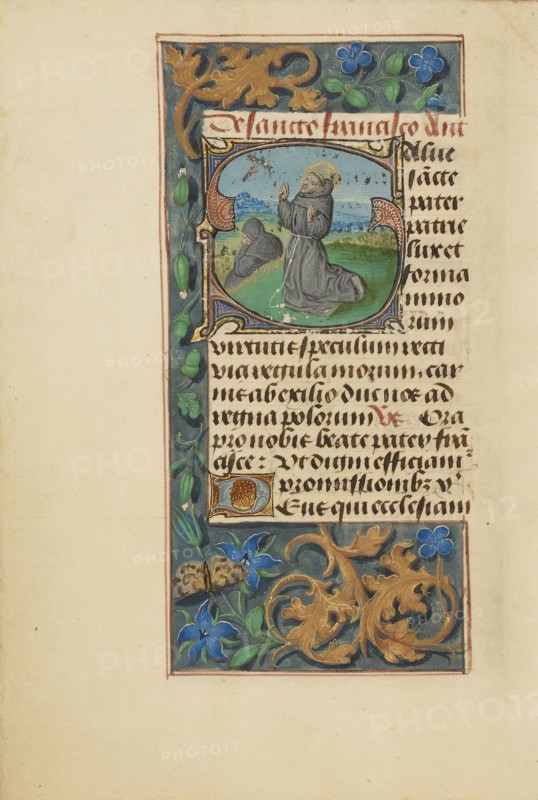 De sancto francisco Ant
Salue
sācte
pater
patrie
lux et
forma
mino
rum
virtutis speculum recti
via regula morum. car
nis ab exilio duc nos ad
regna polorum Vs. Ora
pro nobis beate pater frā
cisce: Vt digni efficiam̄
promissionibz
Deus qui ecclesiam
PHOTO12